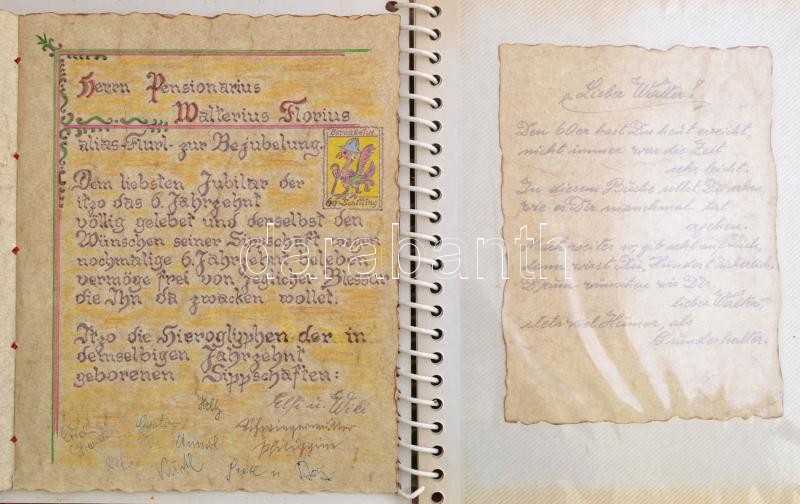 Herrn Pensionarius
Walterius Florius
alias-Flurl- zur Bejubelung.
60-Schilling
Dem liebsten Jubilar der
itzo das 6. Jahrzehnt
völlig gelebet und derselbst den
Wünschen seiner Sippschaft wegen
nochmalige 6 Jahrzehnt geleben
vermöge frei von jeglicher Blessur
die Ihn da zwacken wollet.
Itzo die Hieroglyphen der in
demselbigen Jahrzehnt
geborenen Sippschaften:
Elfi u. Wiki
Schwiegermutter
Philippine
"Lieber Walter!"
Den 60er hast Du heut erreicht,
nicht immer war die Zeit
sehr leicht.
In diesem Buche sollst Du sehen,
wie es Dir manchmal tat
ergehen.
Mach weiter so, gib acht auf Dich,
dann wirst Du Hundert sicherlich.
Drum wünschen wir Dir,
lieber Walter,
stets viel Humor, als
darabanth